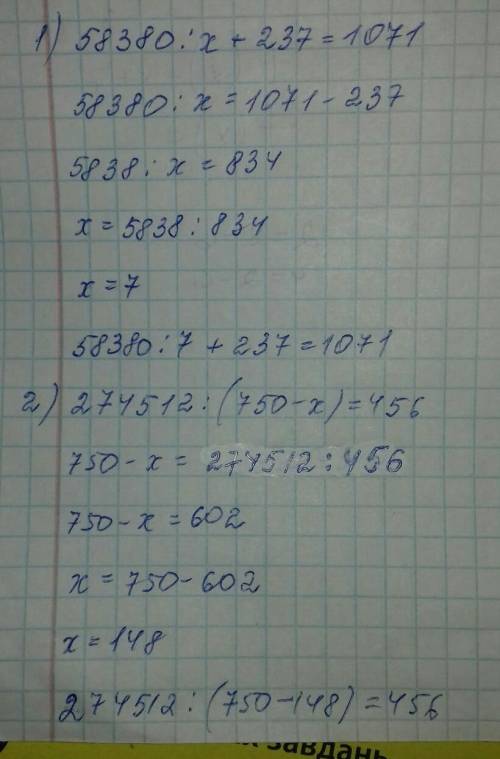 1) 58380 : x + 237 = 1071
58380 : x = 1071 - 237
5838 : x = 834
x = 5838 : 834
x = 7
58380 : 7 + 237 = 1071
2) 274512 : (750 - x) = 456
750 - x = 274512 : 456
750 - x = 602
x = 750 - 602
x = 148
274512 : (750 - 148) = 456
завдань